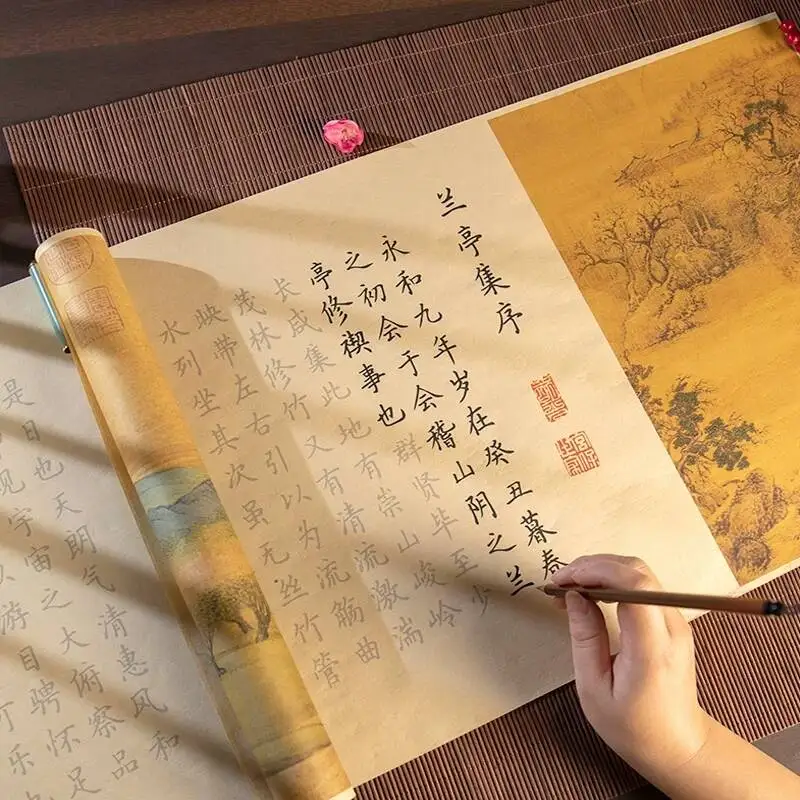 兰亭集序
永和九年岁在癸丑暮春
之初会于会稽山阴之兰
亭修禊事也群贤毕至少
长咸集此地有崇山峻岭
茂林修竹又有清流激湍
映带左右引以为流觞曲
水列坐其次虽无丝竹管
是日也天朗气清惠风和
观宇宙之大俯察品
以游目骋怀足
可乐也